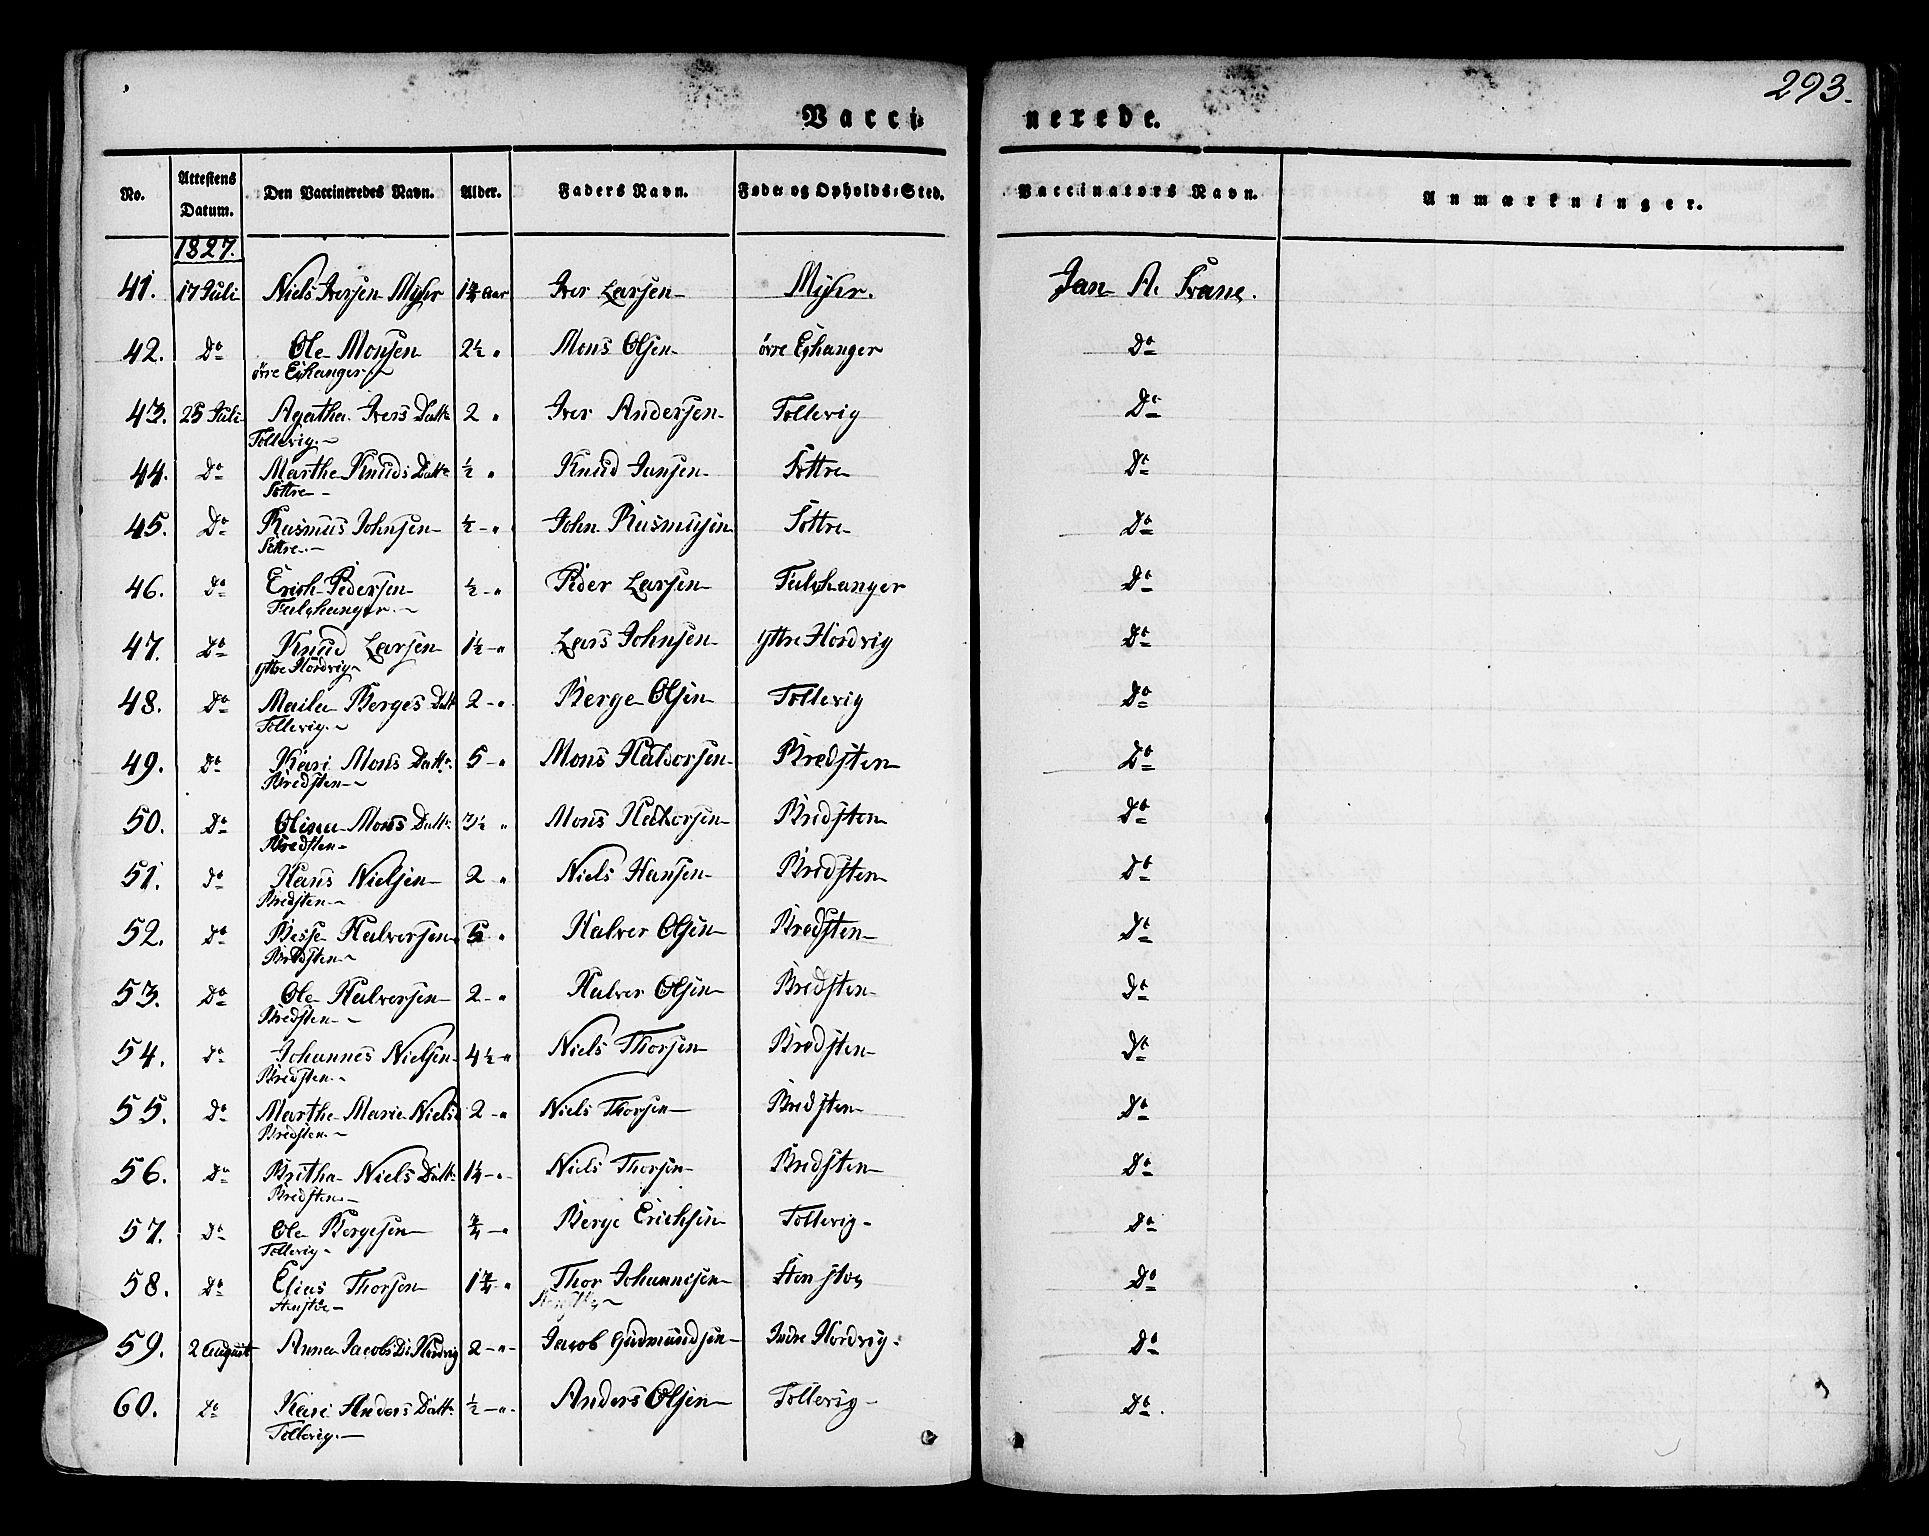 293.
Vacci nerede.
No. Attestens Datum. Den Vaccineredes Navn. Alder. Faders Navn. Føde- og Opholds-Sted. Vaccinators Navn. Anmærkninger.
1827.
41. 17 Juli Niels Iversen Myhr 1¾ Aar Iver Larsen Myhr. Jan A. Krane.
42. Do Ole Monsen 2½ " Mons Olsen øvre Eshanger Do
øvre Eshanger
43. 25 Juli Agatha Ivers Datt: 2 " Iver Andersen Tollevig Do
Tollevig.
44. Do Marthe Knuds Datt: ½ " Knud Jansen Tottre Do
Tottre
45. Do Rasmus Johnsen ½ " John Rasmusen Tottre Do
Tottre
46. Do Erich Pedersen ½ " Peder Larsen Falshanger Do
Falshanger
47. Do Knud Larsen 1½ " Lars Johnsen Yttre Hordvig Do
Yttre Hordvig
48. Do Maila Berges Datt 2 " Berge Olsen Tollevig Do
Tollevig.
49. Do Kari Mons Datt: 5 " Mons Haldorsen Bredsten Do
Bredsten
50. Do Olina Mons Datt: 3½ " Mons Haldorsen Bredsten Do
Bredsten
51. Do Hans Nielsen 2 " Niels Hansen Bredsten Do
Bredsten
52. Do Besse Halversen 5 " Halver Olsen Bredsten Do
Bredsten
53. Do Ole Halversen 2 " Halver Olsen Bredsten Do
Bredsten
54. Do Johannes Nielsen 4½ " Niels Thorsen Bredsten Do
Bredsten
55. Do Marthe Marie Niels 2 " Niels Thorsen Bredsten Do
Bredsten
56. Do Britha Niels Datt: 1¼ " Niels Thorsen Bredsten Do
Bredsten
57. Do Ole Bergesen ¾ " Berge Erichsen Tollevig Do
Tollevig
58. Do Elias Thorsen 1¾ " Thor Johannesen Stenstøe Do
Stenstøe
59. 2 August Anna Jacobs D: Hordvig 2 " Jacob Gudmundsen Indre Hordvig Do
60. Do Kari Anders Datt: ½ " Anders Olsen Tollevig Do.
Tollevig.